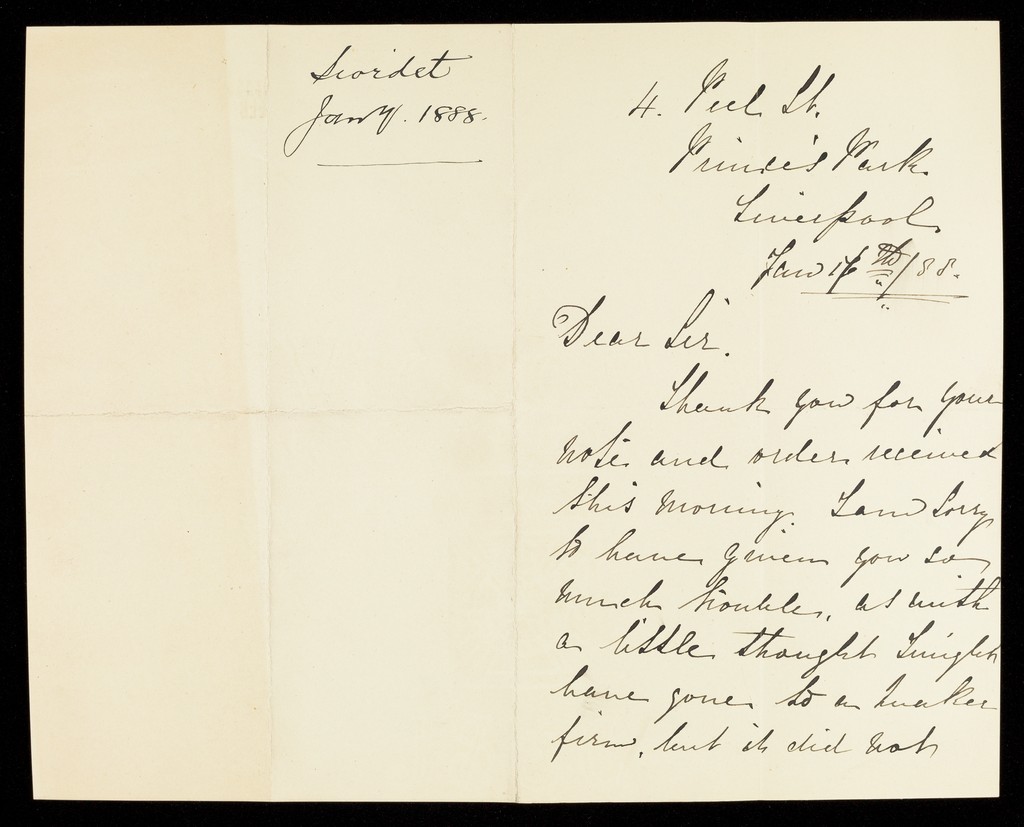 Liordet
Jany. 1888.
4. Peel St.
Prince's Park
Liverpool
Jan 16th/88.
Dear Sir.
Thank you for your
note and order received
this morning. I am sorry
to have given you so
much trouble, as with
a little thought I might
have gone to a Quaker
firm, but it did not